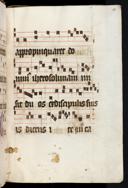 appropinquaret do
minus iherosolimam mi
sit du os ex discipulis suis
is dicens i te in ca